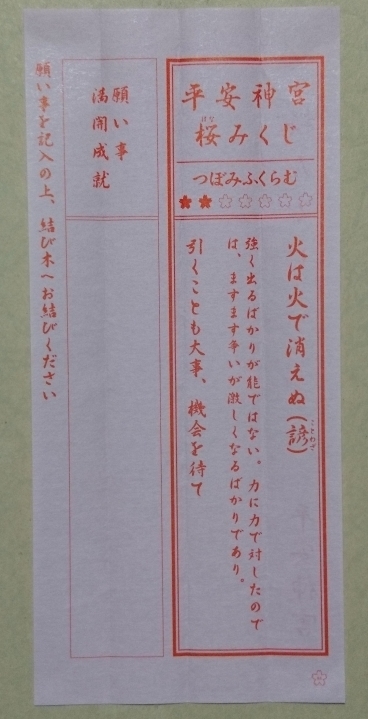 平安神宮
桜みくじ
はな
つぼみふくらむ
火は火で消えぬ(諺)
ことわざ
強く出るばかりが能ではない。力に力で対したので
は、ますます争いが激しくなるばかりであり。
引くことも大事、機会を待て
願い事
満開成就
願い事を記入の上、結び木へお結びください